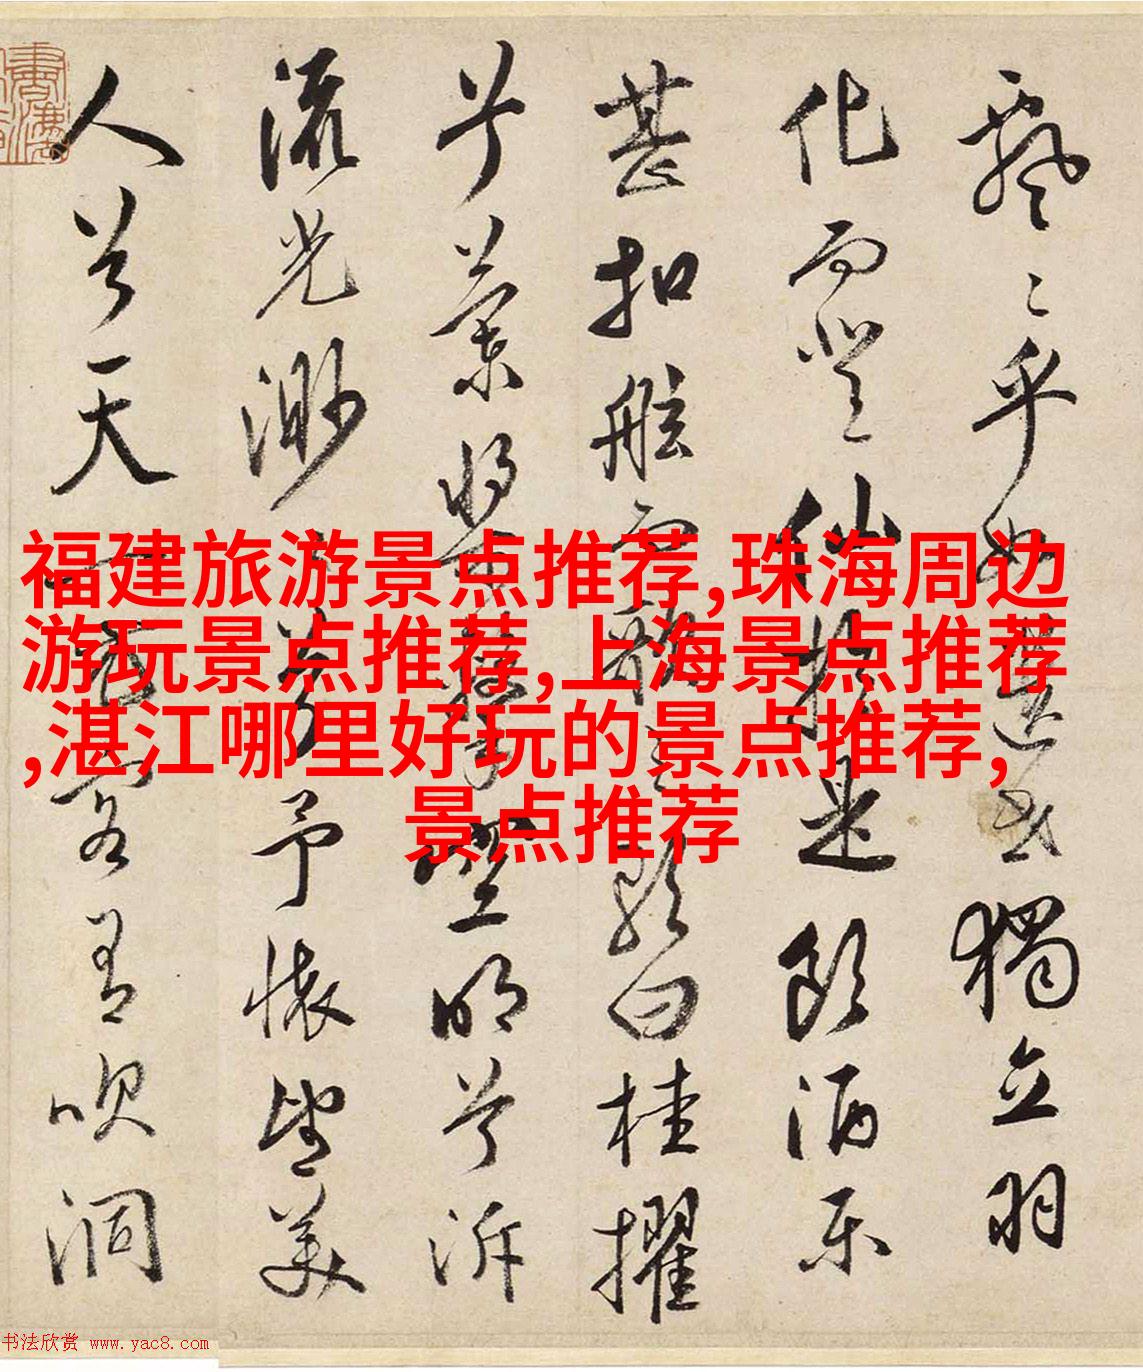 飄〻乎如遺世獨立羽
化而登仙於是飲酒樂
甚扣舷而歌之歌曰桂擢
兮蘭槳擊空明兮泝
流光渺〻兮予懷望美
人兮天一方客有吹洞
福建旅游景点推荐,珠海周边
游玩景点推荐,上海景点推荐
,湛江哪里好玩的景点推荐,
景点推荐
书法欣赏 www.yac8.com